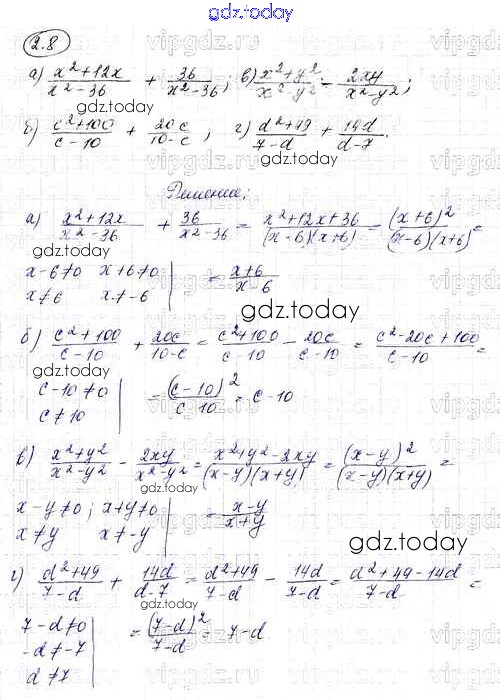 gdz.today
2.8
а) (x²+12x)/(x²-36) + 36/(x²-36); в) (x²+y²)/(x²-y²) - 2xy/(x²-y²);
gdz.today
б) (c²+100)/(c-10) + 20c/(10-c); г) (d²+49)/(7-d) + 14d/(d-7).
gdz.today
Решение:
а) (x²+12x)/(x²-36) + 36/(x²-36) = (x²+12x+36)/((x-6)(x+6)) = (x+6)²/((x-6)(x+6)) =
gdz.today
x-6≠0 x+6≠0 | = (x+6)/(x-6)
x≠6 x≠-6
gdz.today
б) (c²+100)/(c-10) + 20c/(10-c) = (c²+100)/(c-10) - 20c/(c-10) = (c²-20c+100)/(c-10) =
gdz.today
c-10≠0 | = (c-10)²/(c-10) = c-10
c≠10
gdz.today
в) (x²+y²)/(x²-y²) - 2xy/(x²-y²) = (x²+y²-2xy)/((x-y)(x+y)) = (x-y)²/((x-y)(x+y)) =
gdz.today
x-y≠0; x+y≠0 | = (x-y)/(x+y)
x≠y x≠-y
gdz.today
г) (d²+49)/(7-d) + 14d/(d-7) = (d²+49)/(7-d) - 14d/(7-d) = (d²+49-14d)/(7-d) =
gdz.today
7-d≠0 | = (7-d)²/(7-d) = 7-d.
-d≠-7
d≠7